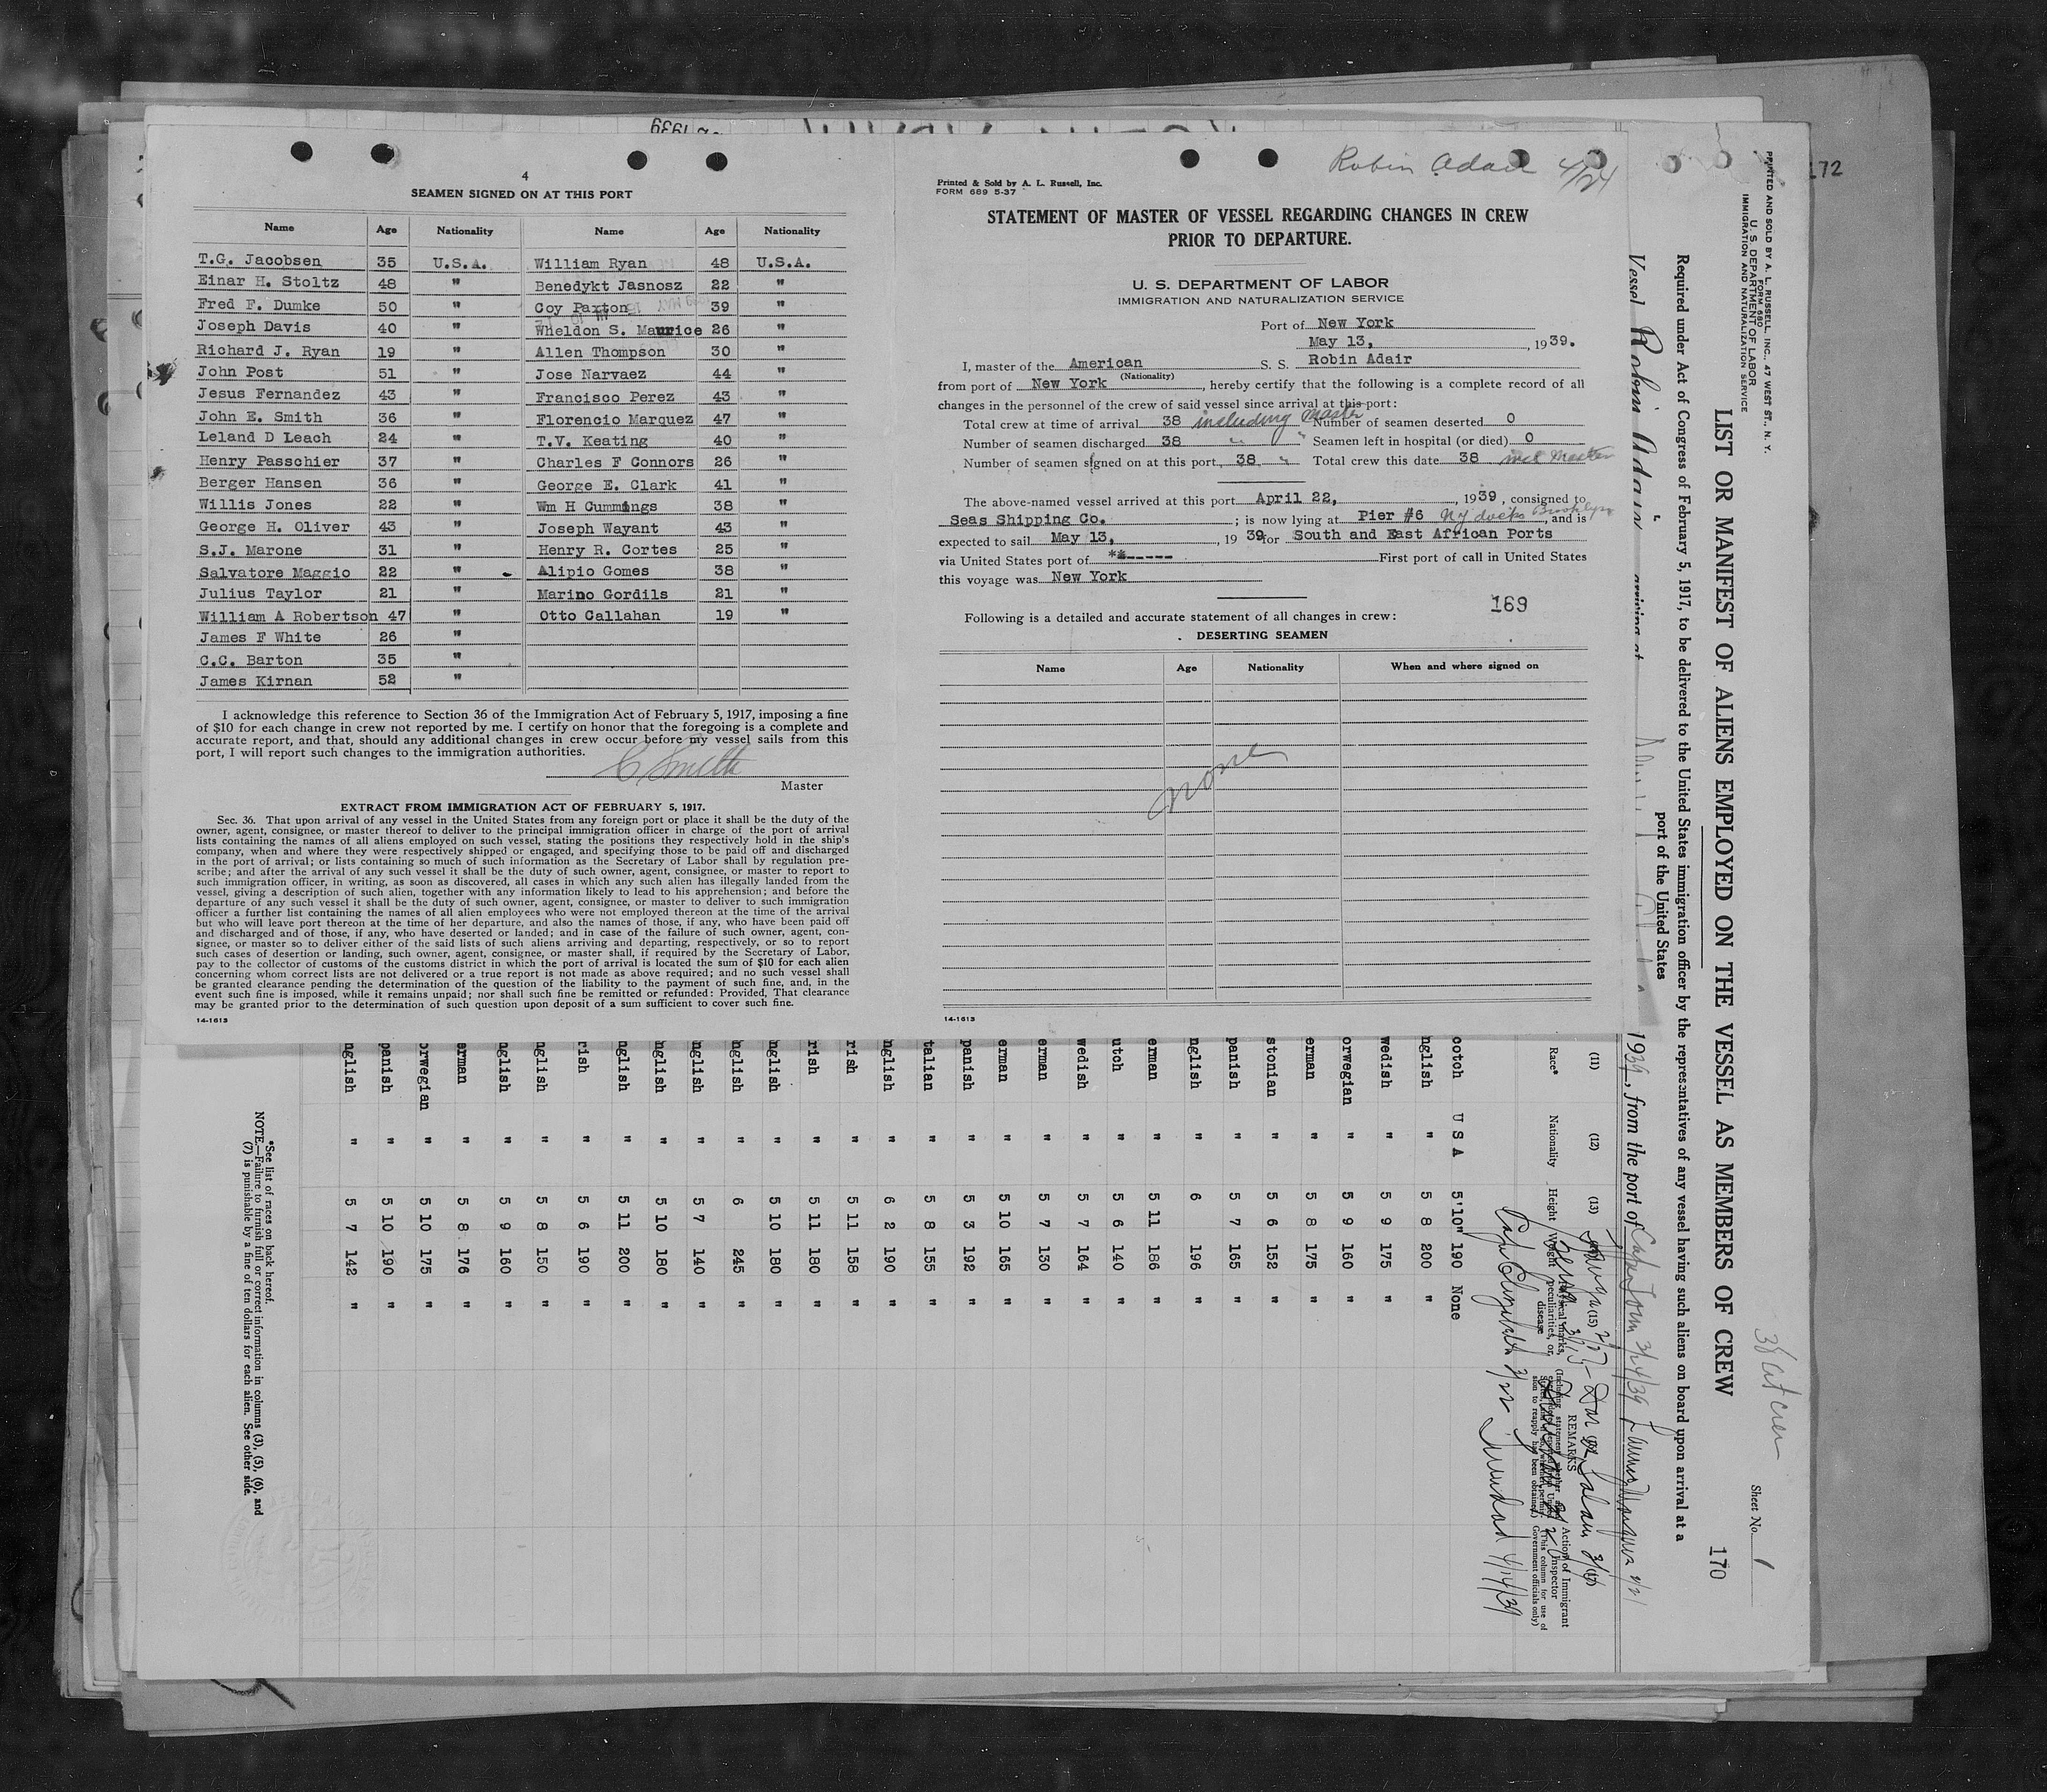 4
SEAMEN SIGNED ON AT THIS PORT
Name Age Nationality Name Age Nationality
T.G. Jacobsen 35 U.S.A. William Ryan 48 U.S.A.
Einar H. Stoltz 48 " Benedykt Jasnosz 22 "
Fred F. Dumke 50 " Coy Paxton 39 "
Joseph Davis 40 " Wheldon S. Maurice 26 "
Richard J. Ryan 19 " Allen Thompson 30 "
John Post 51 " Jose Narvaez 44 "
Jesus Fernandez 43 " Francisco Perez 43 "
John E. Smith 36 " Florencio Marquez 47 "
Leland D Leach 24 " T.V. Keating 40 "
Henry Passchier 37 " Charles F Connors 26 "
Berger Hansen 36 " George E. Clark 41 "
Willis Jones 22 " Wm H Cummings 38 "
George H. Oliver 43 " Joseph Wayant 43 "
S.J. Marone 31 " Henry R. Cortes 25 "
Salvatore Maggio 22 " Alipio Gomes 38 "
Julius Taylor 21 " Marino Gordils 21 "
William A Robertson 47 " Otto Callahan 19 "
James F White 26 "
C.C. Barton 35 "
James Kirnan 52 "
I acknowledge this reference to Section 36 of the Immigration Act of February 5, 1917, imposing a fine
of $10 for each change in crew not reported by me. I certify on honor that the foregoing is a complete and
accurate report, and that, should any additional changes in crew occur before my vessel sails from this
port, I will report such changes to the immigration authorities.
C Smith
Master
EXTRACT FROM IMMIGRATION ACT OF FEBRUARY 5, 1917.
Sec. 36. That upon arrival of any vessel in the United States from any foreign port or place it shall be the duty of the
owner, agent, consignee, or master thereof to deliver to the principal immigration officer in charge of the port of arrival
lists containing the names of all aliens employed on such vessel, stating the positions they respectively hold in the ship's
company, when and where they were respectively shipped or engaged, and specifying those to be paid off and discharged
in the port of arrival; or lists containing so much of such information as the Secretary of Labor shall by regulation pre-
scribe; and after the arrival of any such vessel it shall be the duty of such owner, agent, consignee, or master to report to
such immigration officer, in writing, as soon as discovered, all cases in which any such alien has illegally landed from the
vessel, giving a description of such alien, together with any information likely to lead to his apprehension; and before the
departure of any such vessel it shall be the duty of such owner, agent, consignee, or master to deliver to such immigration
officer a further list containing the names of all alien employees who were not employed thereon at the time of the arrival
but who will leave port thereon at the time of her departure, and also the names of those, if any, who have been paid off
and discharged and of those, if any, who have deserted or landed; and in case of the failure of such owner, agent, con-
signee, or master so to deliver either of the said lists of such aliens arriving and departing, respectively, or so to report
such cases of desertion or landing, such owner, agent, consignee, or master shall, if required by the Secretary of Labor,
pay to the collector of customs of the customs district in which the port of arrival is located the sum of $10 for each alien
concerning whom correct lists are not delivered or a true report is not made as above required; and no such vessel shall
be granted clearance pending the determination of the question of the liability to the payment of such fine, and, in the
event such fine is imposed, while it remains unpaid; nor shall such fine be remitted or refunded: Provided, That clearance
may be granted prior to the determination of such question upon deposit of a sum sufficient to cover such fine.
14-1613
Robin Adair 4/24
Printed & Sold by A. L. Russell, Inc.
FORM 689 5-37
STATEMENT OF MASTER OF VESSEL REGARDING CHANGES IN CREW
PRIOR TO DEPARTURE.
U. S. DEPARTMENT OF LABOR
IMMIGRATION AND NATURALIZATION SERVICE
Port of New York
May 13, , 1939.
I, master of the American S. S. Robin Adair
(Nationality)
from port of New York , hereby certify that the following is a complete record of all
changes in the personnel of the crew of said vessel since arrival at this port:
Total crew at time of arrival 38 including Master Number of seamen deserted 0
Number of seamen discharged 38 " " Seamen left in hospital (or died) 0
Number of seamen signed on at this port 38 " Total crew this date 38 incl Master
The above-named vessel arrived at this port April 22, , 1939, consigned to
Seas Shipping Co. ; is now lying at Pier #6 NY docks Brooklyn , and is
expected to sail May 13, , 1939 for South and East African Ports
via United States port of **----- First port of call in United States
this voyage was New York
169
Following is a detailed and accurate statement of all changes in crew:
DESERTING SEAMEN
Name Age Nationality When and where signed on
none
14-1613
172
PRINTED AND SOLD BY A. L. RUSSELL, INC., 47 WEST ST., N. Y.
FORM 680
U. S. DEPARTMENT OF LABOR
IMMIGRATION AND NATURALIZATION SERVICE
Sheet No. 1
170
LIST OR MANIFEST OF ALIENS EMPLOYED ON THE VESSEL AS MEMBERS OF CREW
Required under Act of Congress of February 5, 1917, to be delivered to the United States immigration officer by the representatives of any vessel having such aliens on board upon arrival at a
port of the United States
Vessel Robin Adair arriving at 1939, from the port of Cape Town 3/24/39
(11) (12) (13) (15)
Race* Nationality Height Weight Physical marks, peculiarities, or disease REMARKS
Action of Immigrant Inspector
(This column for use of Government officials only)
Dar es Salaam
Port Elizabeth 3/22 Trinidad 4/14/39
cotch U S A 5'10" 190 None
nglish " 5 8 200 "
wedish " 5 9 175 "
orwegian " 5 9 160 "
erman " 5 8 175 "
stonian " 5 6 152 "
panish " 5 7 165 "
nglish 6 196 "
erman " 5 11 186 "
utch " 5 6 140 "
wedish " 5 7 164 "
erman " 5 7 130 "
erman " 5 10 165 "
panish " 5 3 192 "
talian " 5 8 155 "
nglish " 6 2 190 "
rish " 5 11 158 "
rish " 5 11 180 "
nglish " 5 10 180 "
nglish " 6 245 "
nglish " 5 7 140 "
nglish " 5 10 180 "
nglish " 5 11 200 "
rish " 5 6 190 "
nglish " 5 8 150 "
nglish " 5 9 160 "
erman " 5 8 176 "
orwegian " 5 10 175 "
panish " 5 10 190 "
nglish " 5 7 142 "
*See list of races on back hereof.
NOTE.—Failure to furnish full or correct information in columns (3), (5), (6), and
(7) is punishable by a fine of ten dollars for each alien. See other side.